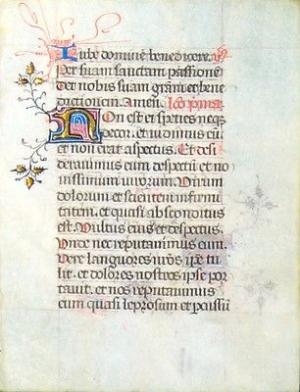 Iube domine benedicere.
Per suam sanctam passione
det nobis suam gram et bene
dictionem. Amen. Lco prima
Non est ei species neqz
decor. et vidimus eu
et non erat aspectus. Et desi
deravimus eum despectu et no
vissimum virorum. Virum
dolorum et scientem infirmi
tatem. et quasi absconditus
est. Vultus eius et despectus.
Unde nec reputavimus eum.
Vere languores nros ipse tu
lit. et dolores nostros ipse por
tavit. et nos reputavimus
eum quasi leprosum et percussu